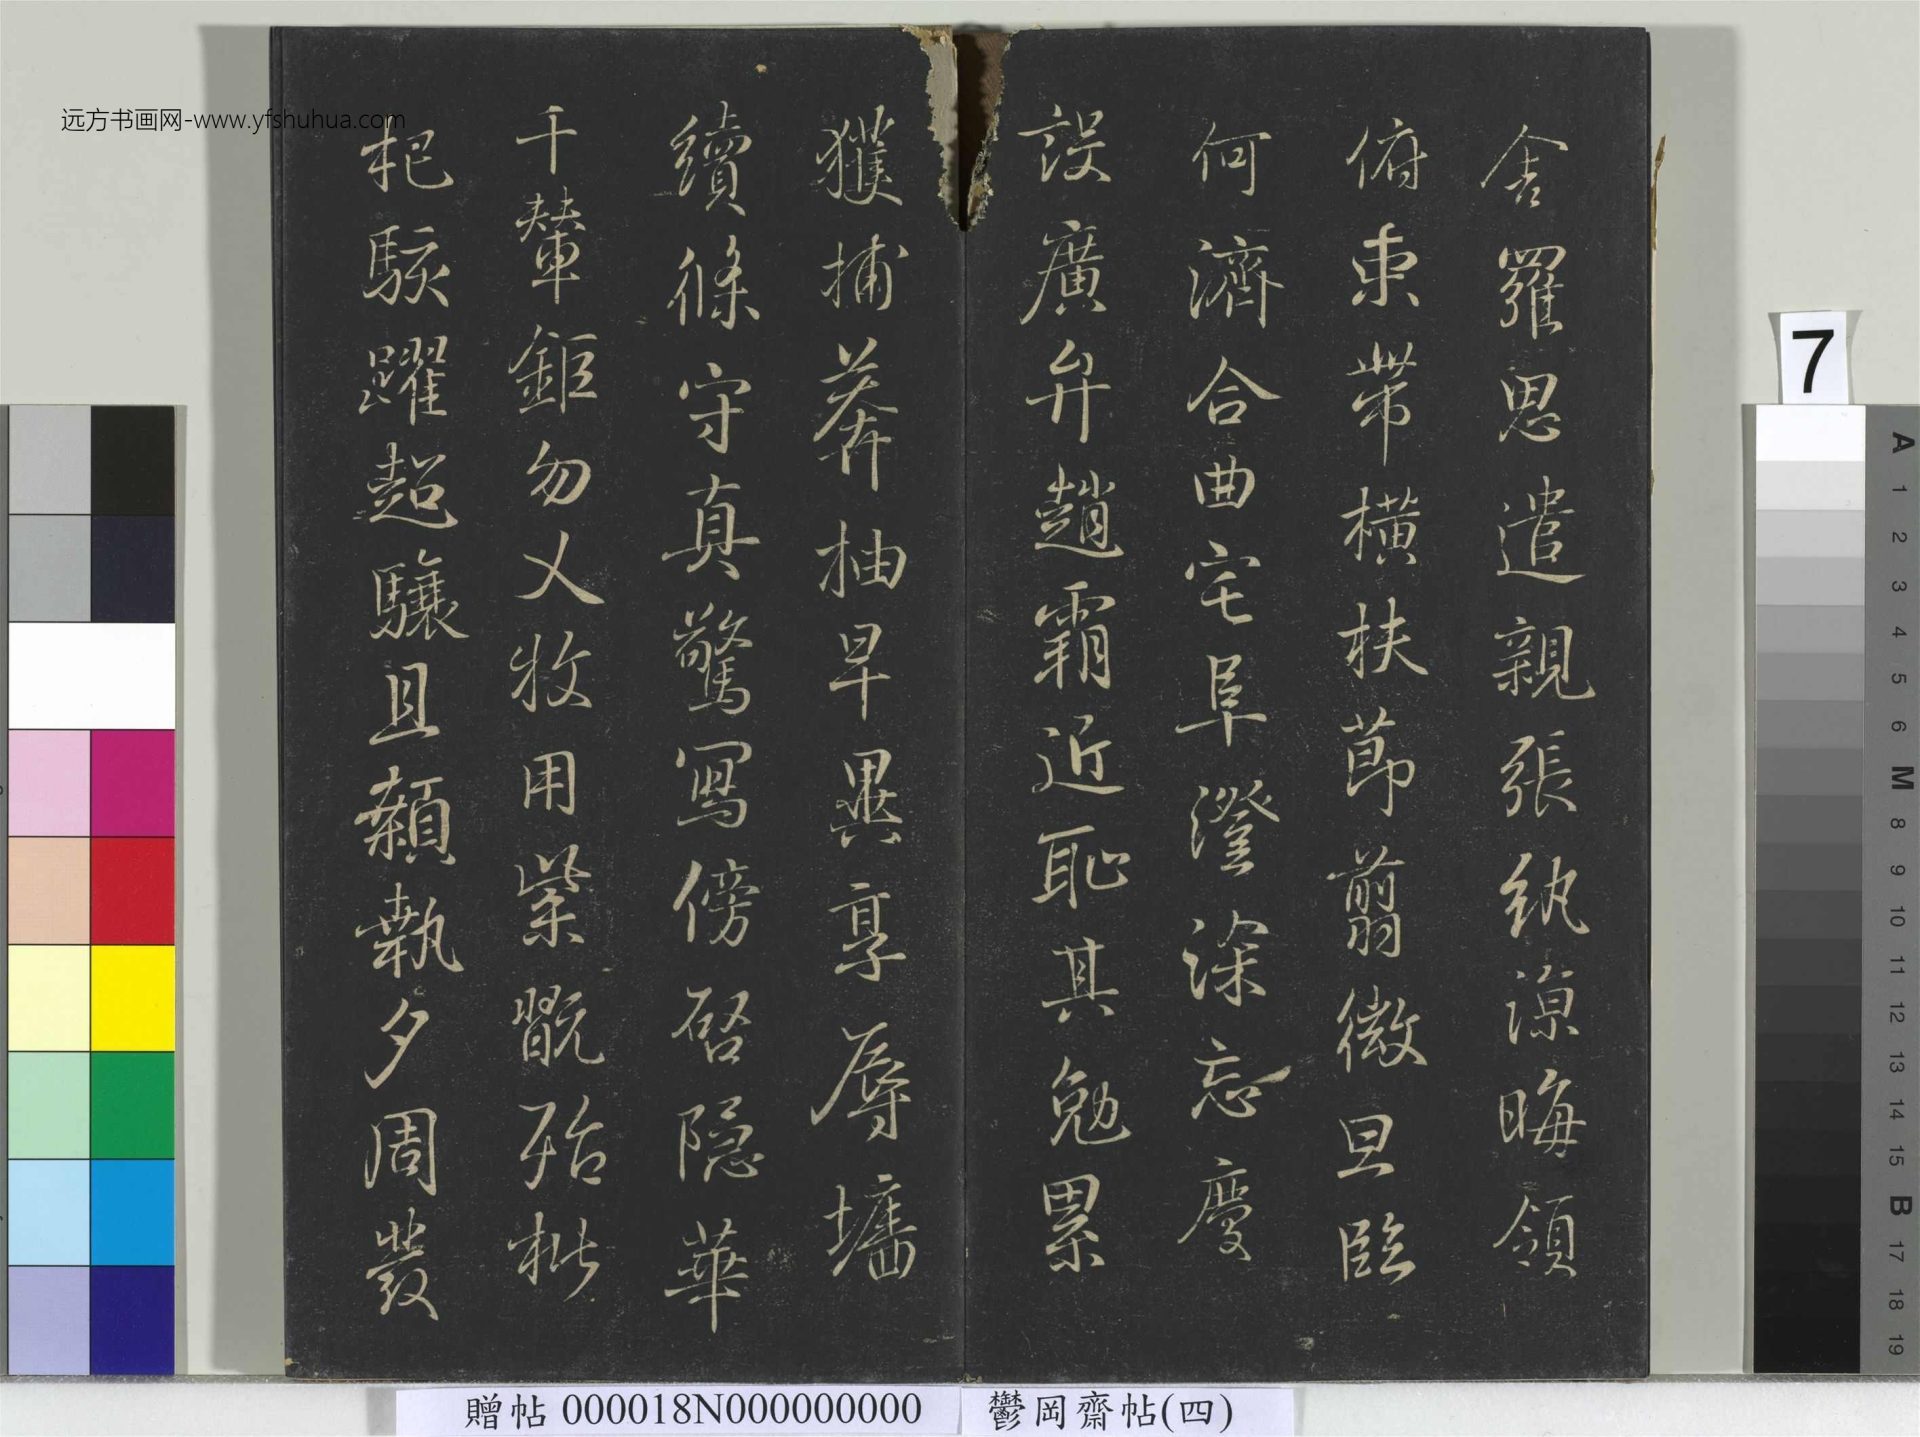 远方书画网-www.yfshuhua.com
舍羅思遣親張紈涼晦領
俯束帶橫扶莭翦微旦臨
何濟合曲宅阜澄深忘慶
設廣弁趙霸近恥其勉累
獲捕莽抽早異享辱墻
續條守真驚寫傍啓隱華
千輦鉅勿乂牧用紫翫殆枇
杷駭躍超驤且顙執夕周發
7
A 1 2 3 4 5 6 M 8 9 10 11 12 13 14 15 B 17 18 19
贈帖 000018N000000000
鬱岡齋帖(四)